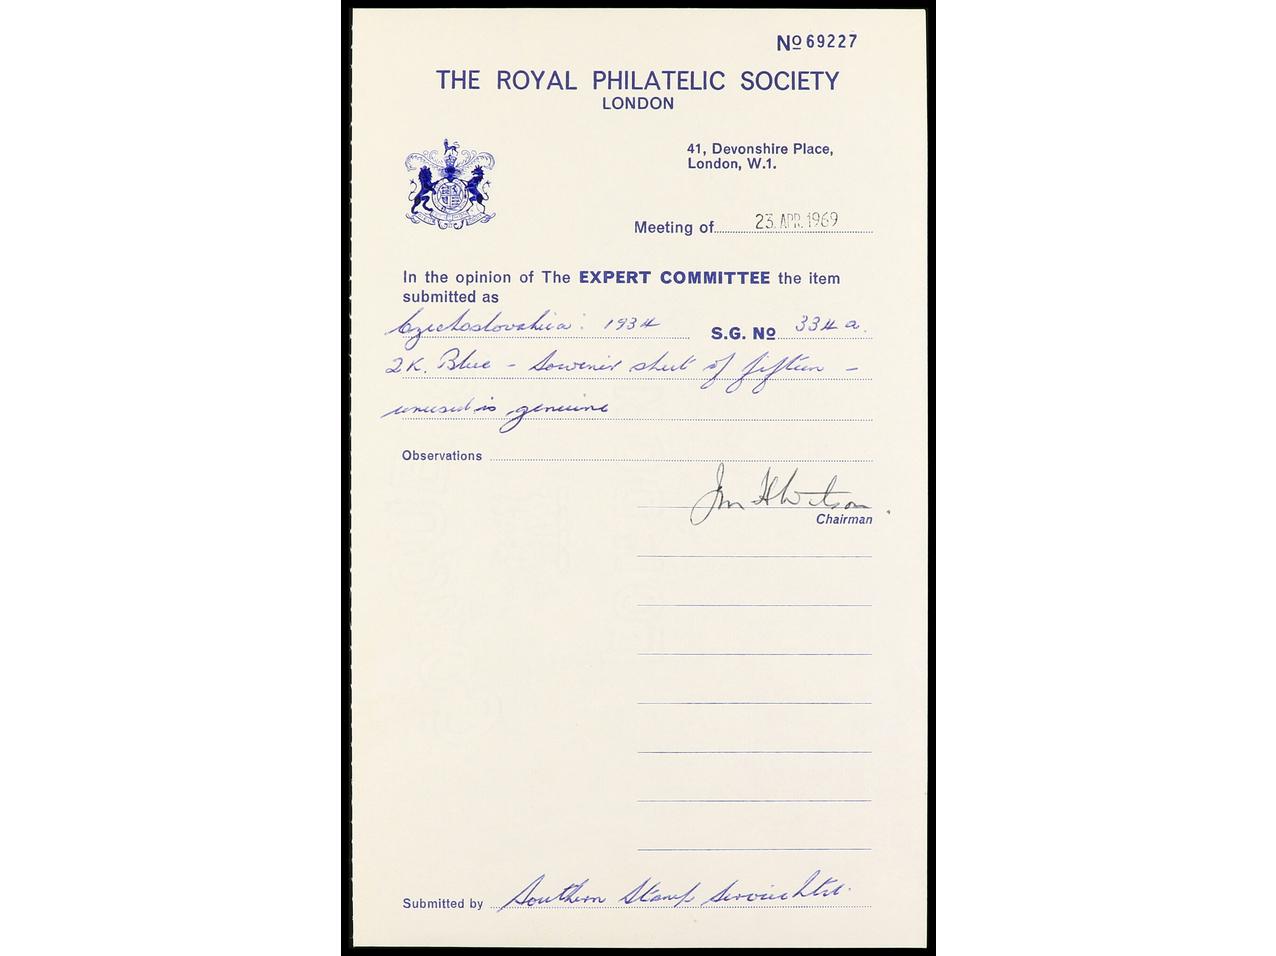 Nº 69227
THE ROYAL PHILATELIC SOCIETY
LONDON
41, Devonshire Place,
London, W.1.
Meeting of 23. APR. 1969
In the opinion of The EXPERT COMMITTEE the item
submitted as
Czechoslovakia: 1934 S.G. Nº 334a.
2K. Blue - Souvenir sheet of fifteen -
unused is genuine
Observations
Watson
Chairman
Submitted by Southern Stamp Service Ltd.